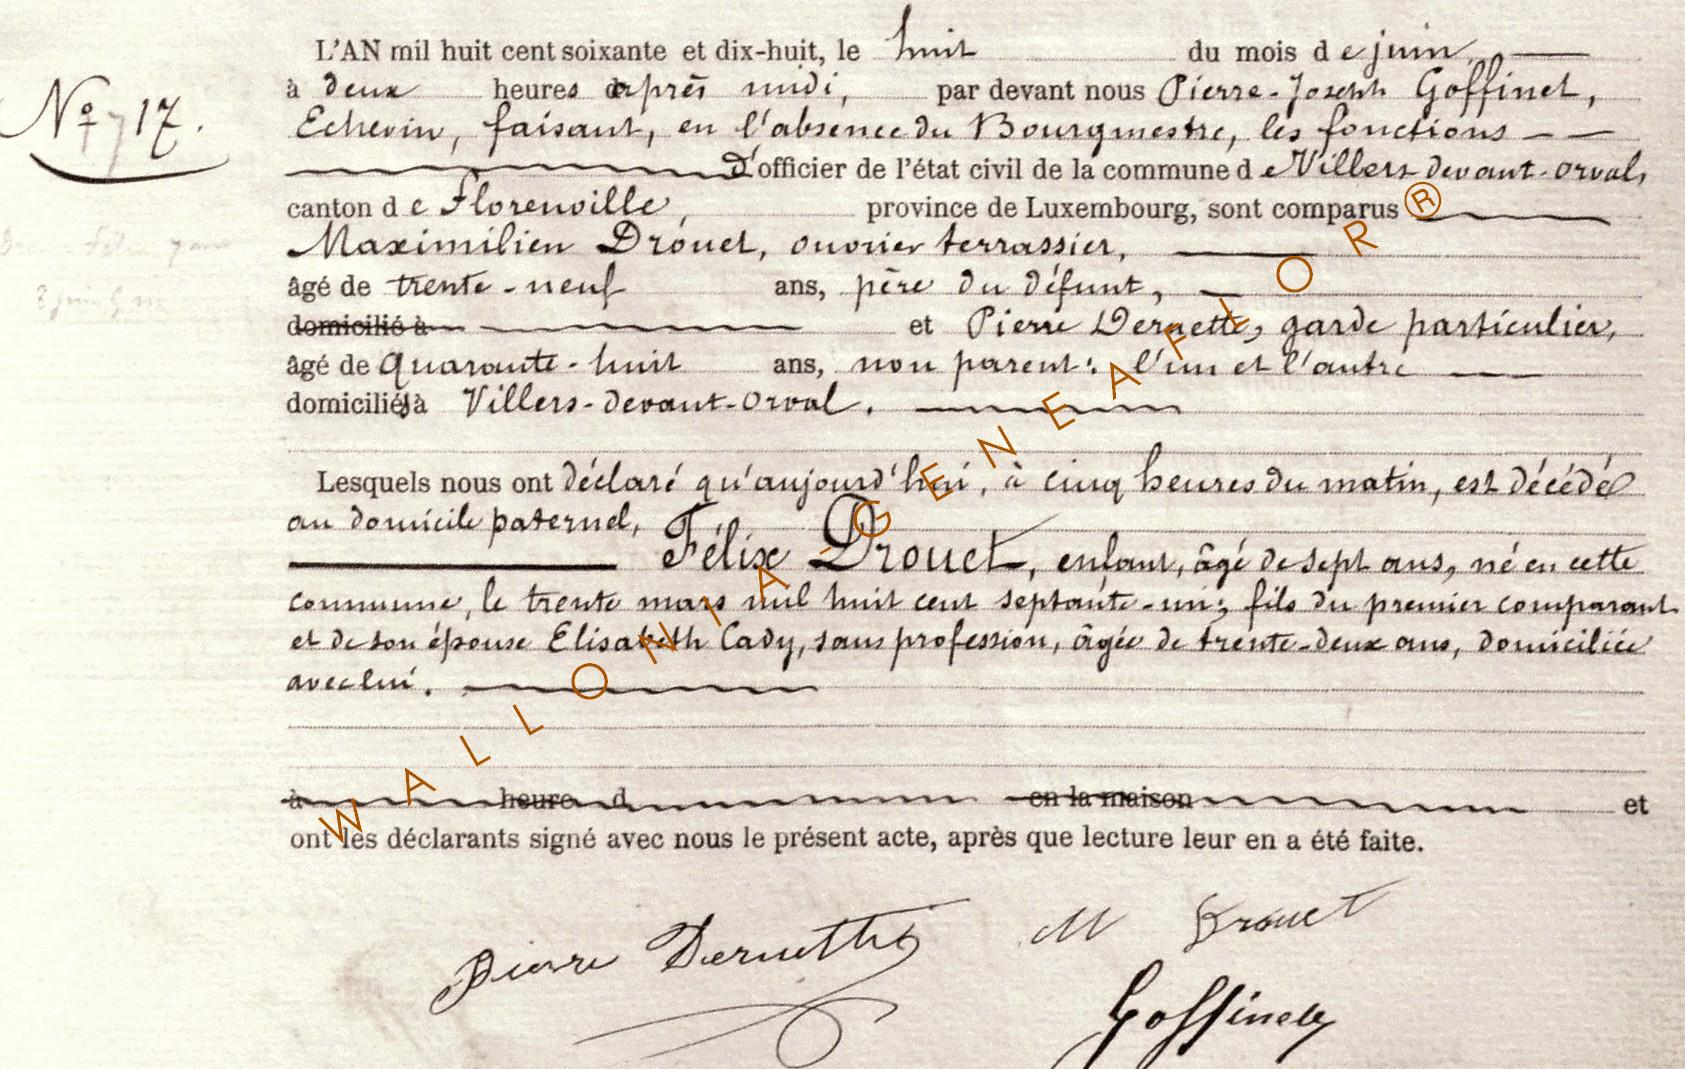 L'AN mil huit cent soixante et dix-huit, le huit du mois de juin
à deux heures après midi, par devant nous Pierre-Joseph Goffinet,
Nº 17.
Echevin, faisant, en l'absence du Bourgmestre, les fonctions
d'officier de l'état civil de la commune de Villers-devant-Orval,
canton de Florenville, province de Luxembourg, sont comparus
Maximilien Drouet, ouvrier terrassier,
âgé de trente-neuf ans, père du défunt,
domicilié à et Pierre Dernette, garde particulier,
âgé de Quarante-huit ans, non parent; l'un et l'autre
domiciliés à Villers-devant-Orval.
Lesquels nous ont déclaré qu'aujourd'hui, à cinq heures du matin, est décédé
au domicile paternel,
Félix Drouet, enfant, âgé de sept ans, né en cette
commune, le trente mars mil huit cent septante-un; fils du premier comparant
et de son épouse Elisabeth Cady, sans profession, âgée de trente-deux ans, domiciliée
avec lui.
à heure d en la maison et
ont les déclarants signé avec nous le présent acte, après que lecture leur en a été faite.
Pierre Dernette M Drouet
Goffinet
WALLONIA-GENEAFLOR®